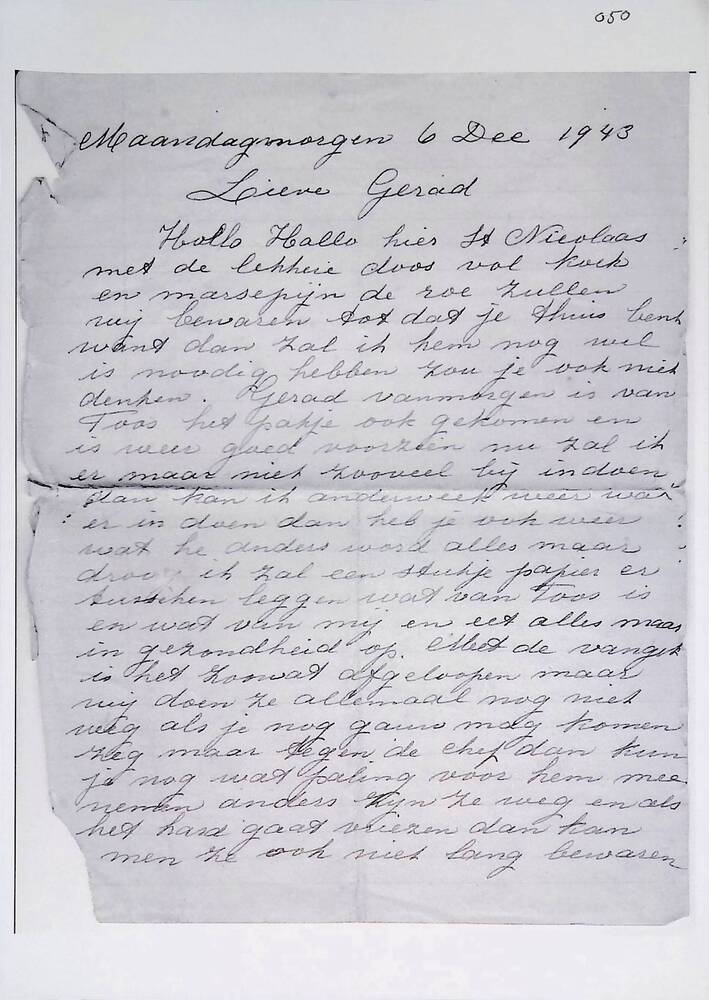 050
Maandagmorgen 6 Dec 1943
Lieve Gerad
Hollo Hallo hier St Nicolaas
met de lekkere doos vol koek
en marsepijn de roe zullen
wij bewaren tot dat je thuis bent
want dan zal ik hem nog wel
is noodig hebben zou je ook niet
denken. Gerad vanmorgen is van
Toos het pakje ook gekomen en
is weer goed voorzien nu zal ik
er maar niet zooveel bij indoen
dan kan ik anderweek weer wat
er in doen dan heb je ook weer
wat he anders word alles maar
droog ik zal een stukje papier er
tusschen leggen wat van Toos is
en wat van mij en eet alles maar
in gezondheid op. Met de vangst
is het zoowat afgeloopen maar
wij doen ze allemaal nog niet
weg als je nog gauw mag komen
zeg maar tegen de chef dan kun
je nog wat paling voor hem mee
nemen anders zijn ze weg en als
het hard gaat vriezen dan kan
men ze ook niet lang bewaren